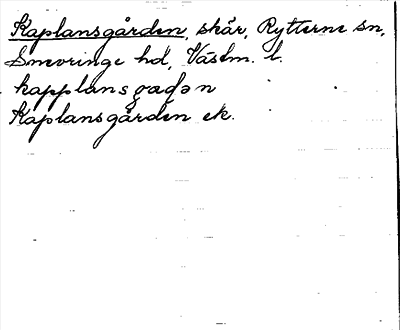 Kaplansgården, skär, Rytterne sn,
Snevringe hd, Västm. l.
kapplansgaḍən
Kaplansgården ek.